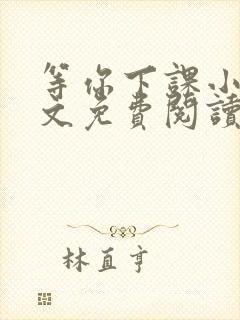 等你下課小
文免費閱讀
林直亨